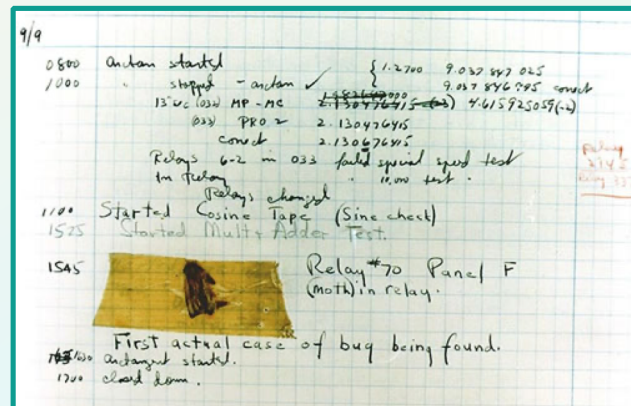 9/9
0800 antan started { 1.2700 9.037 847 025
1000 " stopped - antan ✓ 9.037 846 995 correct
13"uc (032) MP-MC 2.130476415 4.615925059(-2)
(033) PRO 2 2.130476415
correct 2.130676415
Relays 6-2 in 033 failed special speed test
in Relay " 10,000 test.
Relay
Relays changed
1100 Started Cosine Tape (Sine check)
1525 Started Mult+Adder Test.
1545 Relay #70 Panel F
(Moth) in relay.
First actual case of bug being found.
1630 antangent started.
1700 closed down.